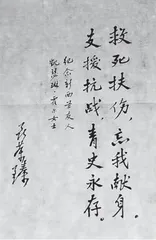 救死扶伤，忘我献身。
支援抗战，青史永存。
纪念新西兰友人
凯瑟琳·霍尔女士
聂荣臻